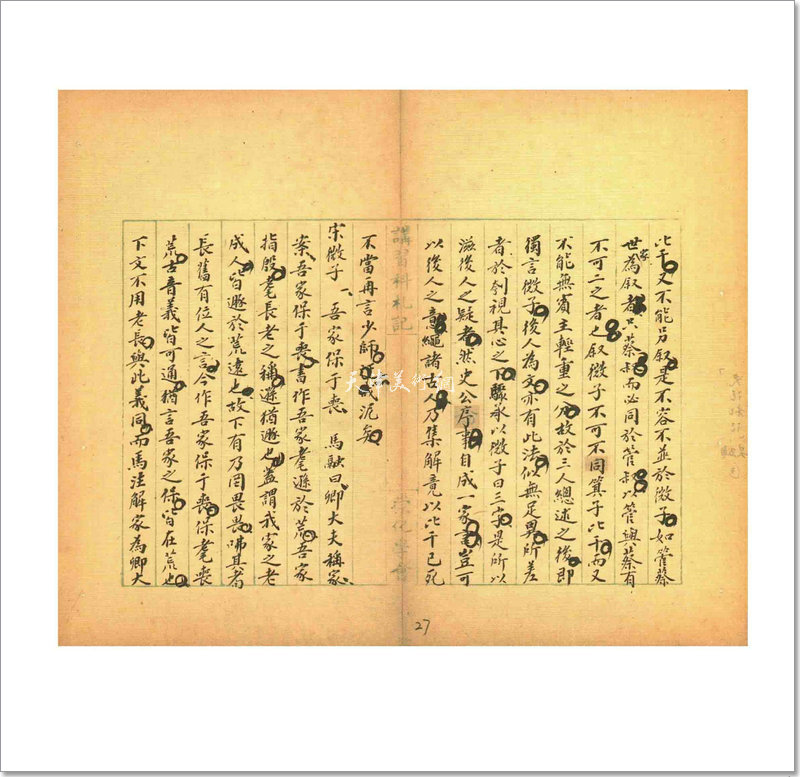 比干又不能另叙是不容不並於微子如管蔡
世家為叙者只蔡叔而必同於管叔以管與蔡有
不可二之者也叙微子不可不同箕子比干而又
不能無賓主輕重之分故於三人總述之後即
獨言微子後人為文亦有此法似無足異所差
者於刳視其心之下驟承以微子曰三字是所以
滋後人之疑者然史公序事自成一家言豈可
以後人之意繩諸古人乃集解竟以比干已死
講習科札記
不當再言少師泥矣
宋微子 吾家保于喪 馬融曰卿大夫稱家
案吾家保于喪書作吾家耄遜於荒吾家
指殷耄長老之稱遜猶遯也蓋謂我家之老
成人皆遯於荒遠也故下有乃罔畏畏咈其耇
長舊有位人之言今作吾家保于喪保耄喪
荒古音義皆可通猶言吾家之保皆在荒也
下文不用老長與此義同而馬注解家為卿大
學會
天津美術網
27